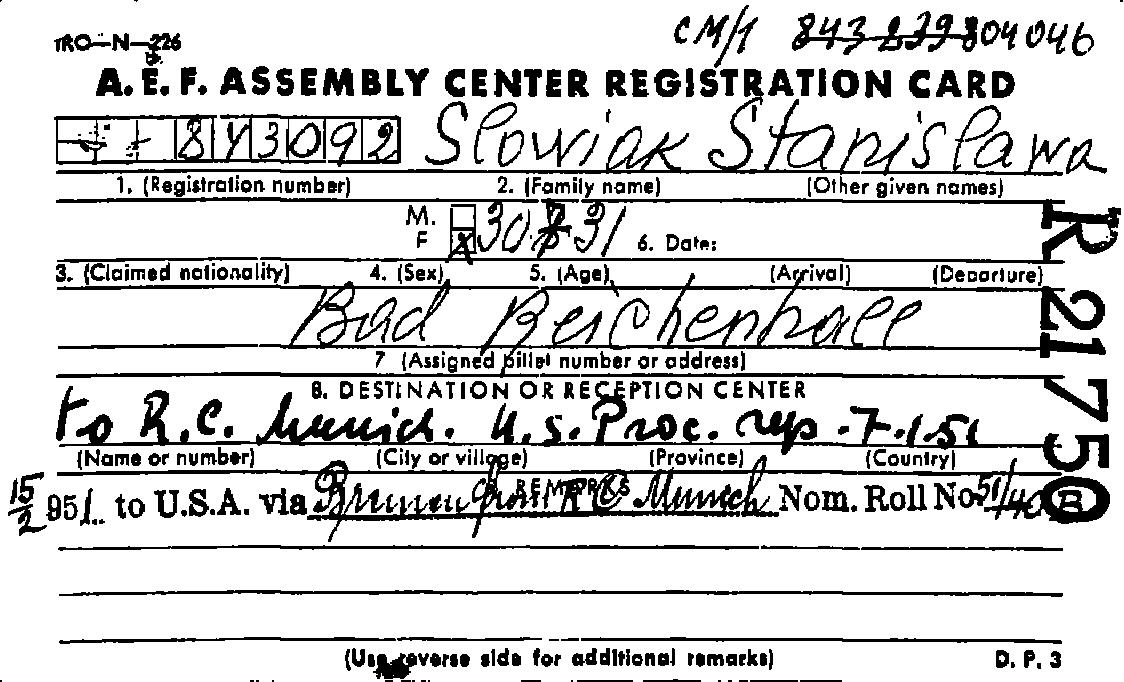 TRO-N-226
CM/1 843 239 804046
A. E. F. ASSEMBLY CENTER REGISTRATION CARD
843092 Slowiak Stanislawa
1. (Registration number) 2. (Family name) (Other given names)
M.
F X 30 31 6. Date:
3. (Claimed nationality) 4. (Sex) 5. (Age) (Arrival) (Departure)
Bad Reichenhall
7 (Assigned billet number or address)
8. DESTINATION OR RECEPTION CENTER
to R.C. Munich. U.S. Proc. rep. 7.1.51
(Name or number) (City or village) (Province) (Country)
REMARKS
15/2 951. to U.S.A. via Bremen from R C Munich Nom. Roll No 51/40 B
(Use reverse side for additional remarks) D. P. 3
R 21750